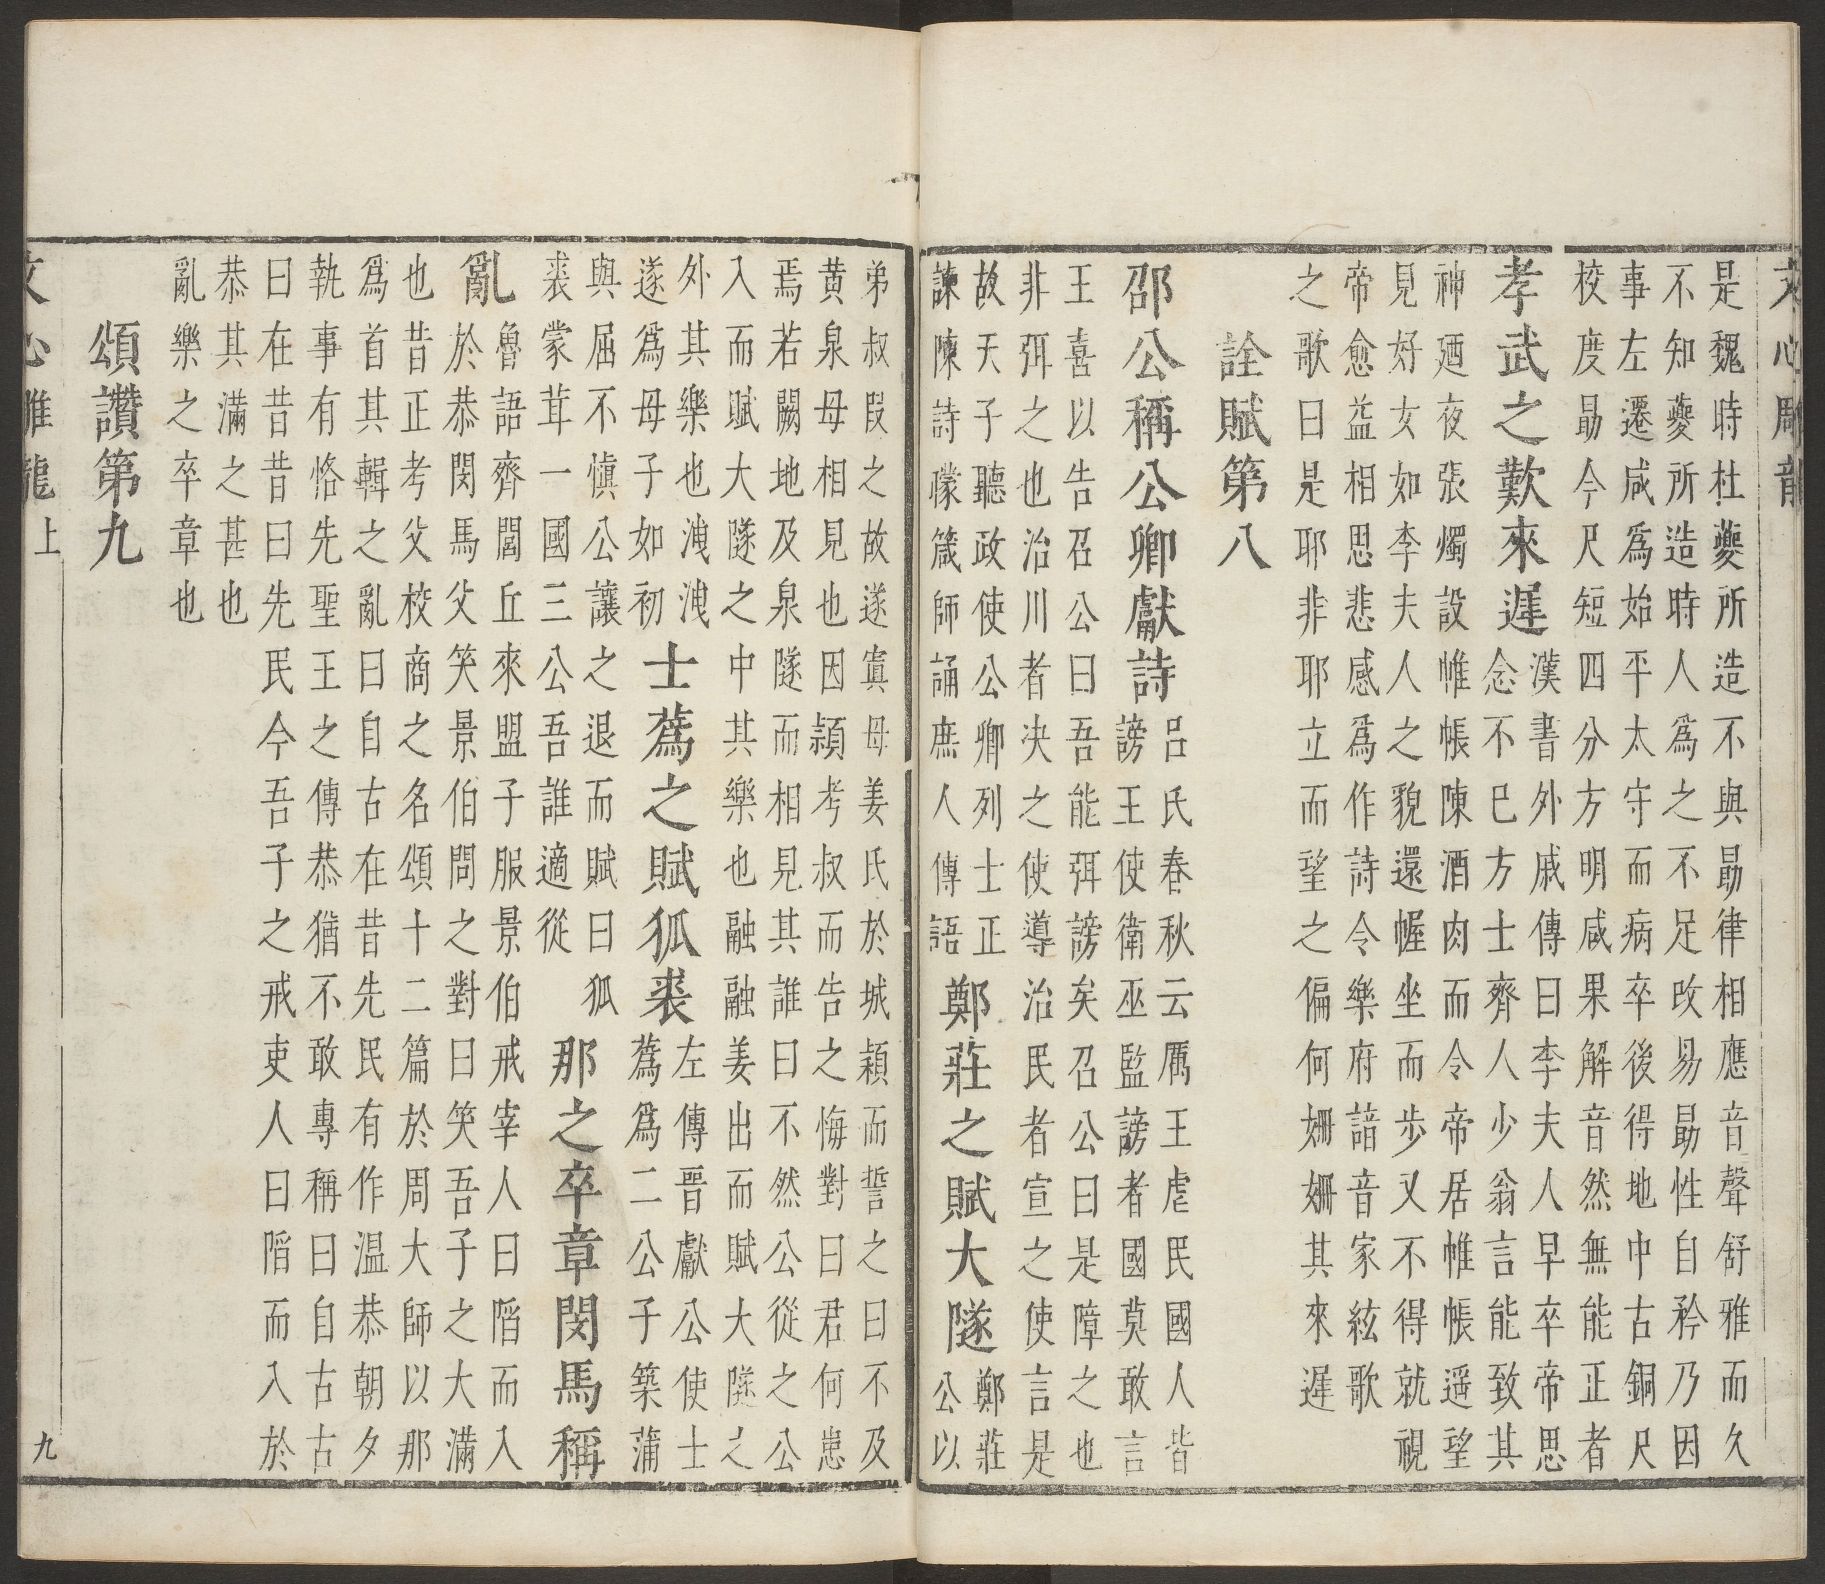 文心雕龍
是魏時杜夔所造不與勗律相應音聲舒雅而久
不知夔所造時人爲之不足改易勗性自矜乃因
事左遷咸爲始平太守而病卒後得地中古銅尺
校度勗今尺短四分方明咸果解音然無能正者
孝武之歎來遲
漢書外戚傳曰李夫人早卒帝思
念不已方士齊人少翁言能致其
神廼夜張燭設帷帳陳酒肉而令帝居帷帳遥望
見好女如李夫人之貌還幄坐而步又不得就視
帝愈益相思悲感爲作詩令樂府諳音家絃歌
之歌曰是耶非耶立而望之偏何姍姍其來遲
詮賦第八
邵公稱公卿獻詩
呂氏春秋云厲王虐民國人皆
謗王使衛巫監謗者國莫敢言
王喜以告召公曰吾能弭謗矣召公曰是障之也
非弭之也治川者决之使導治民者宣之使言是
故天子聽政使公卿列士正
諫陳詩矇箴師誦庶人傳語
鄭莊之賦大隧
鄭莊
公以
弟叔叚之故遂寘母姜氏於城潁而誓之曰不及
黄泉母相見也因潁考叔而告之悔對曰君何患
焉若闕地及泉隧而相見其誰曰不然公從之公
入而賦大隧之中其樂也融融姜出而賦大隧之
外其樂也洩洩
遂爲母子如初
士蔿之賦狐裘
左傳晉獻公使士
蔿爲二公子築蒲
與屈不愼公讓之退而賦曰狐
裘蒙茸一國三公吾誰適從
那之卒章閔馬稱
亂
魯語齊閭丘來盟子服景伯戒宰人曰陷而入
於恭閔馬父笑景伯問之對曰笑吾子之大滿
也昔正考父校商之名頌十二篇於周大師以那
爲首其輯之亂曰自古在昔先民有作温恭朝夕
執事有恪先聖王之傳恭猶不敢專稱曰自古古
曰在昔昔曰先民今吾子之戒吏人曰陷而入於
恭其滿之甚也
亂樂之卒章也
頌讚第九
文心雕龍上
九